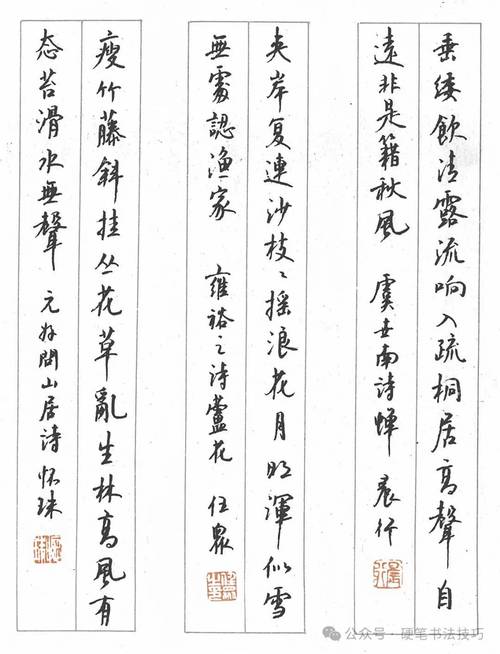 垂緌飲清露流响入疏桐居高聲自
遠非是籍秋風 虞世南詩蝉 晨行
夹岸复連沙枝〻摇浪花月明渾似雪
無處認渔家 雍裕之诗蘆花 任衆
瘦竹藤斜挂丛花草亂生林高風有
态苔滑水無聲 元好問山居詩 怀珠
公众号·硬笔书法技巧